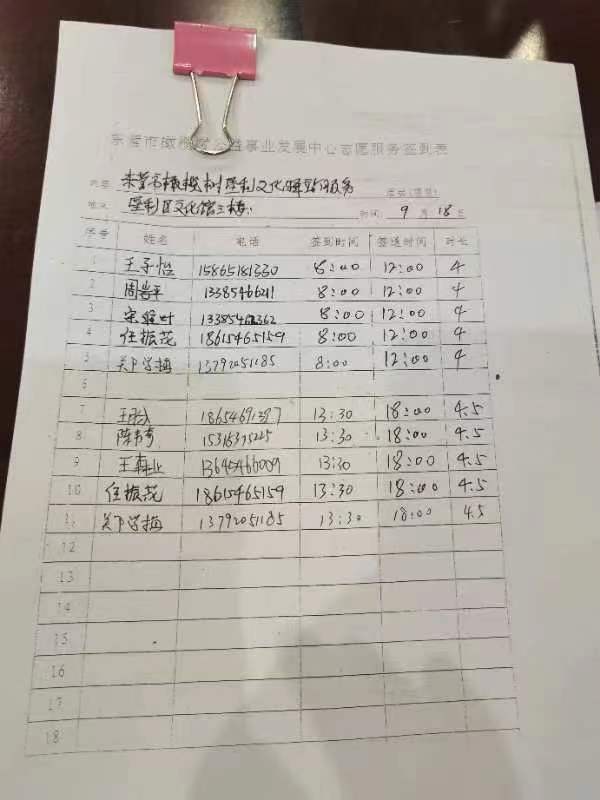 东营市橄榄树公益事业发展中心志愿服务签到表
内容: 东营市橄榄树垦利文化驿站服务
地点: 垦利区文化馆三楼 时间: 9月18日
序号 姓名 电话 签到时间 签退时间 时长
1 王子怡 15865181330 8:00 12:00 4
2 13385466211 8:00 12:00 4
3 8:00 12:00 4
4 任振花 18615465159 8:00 12:00 4
5 13792051185 8:00 12:00 4
6
7 13:30 18:00 4.5
8 15315375225 13:30 18:00 4.5
9 13645466009 13:30 18:00 4.5
10 任振花 18615465159 13:30 18:00 4.5
11 13792051185 13:30 18:00 4.5
12
13
14
15
16
17
18